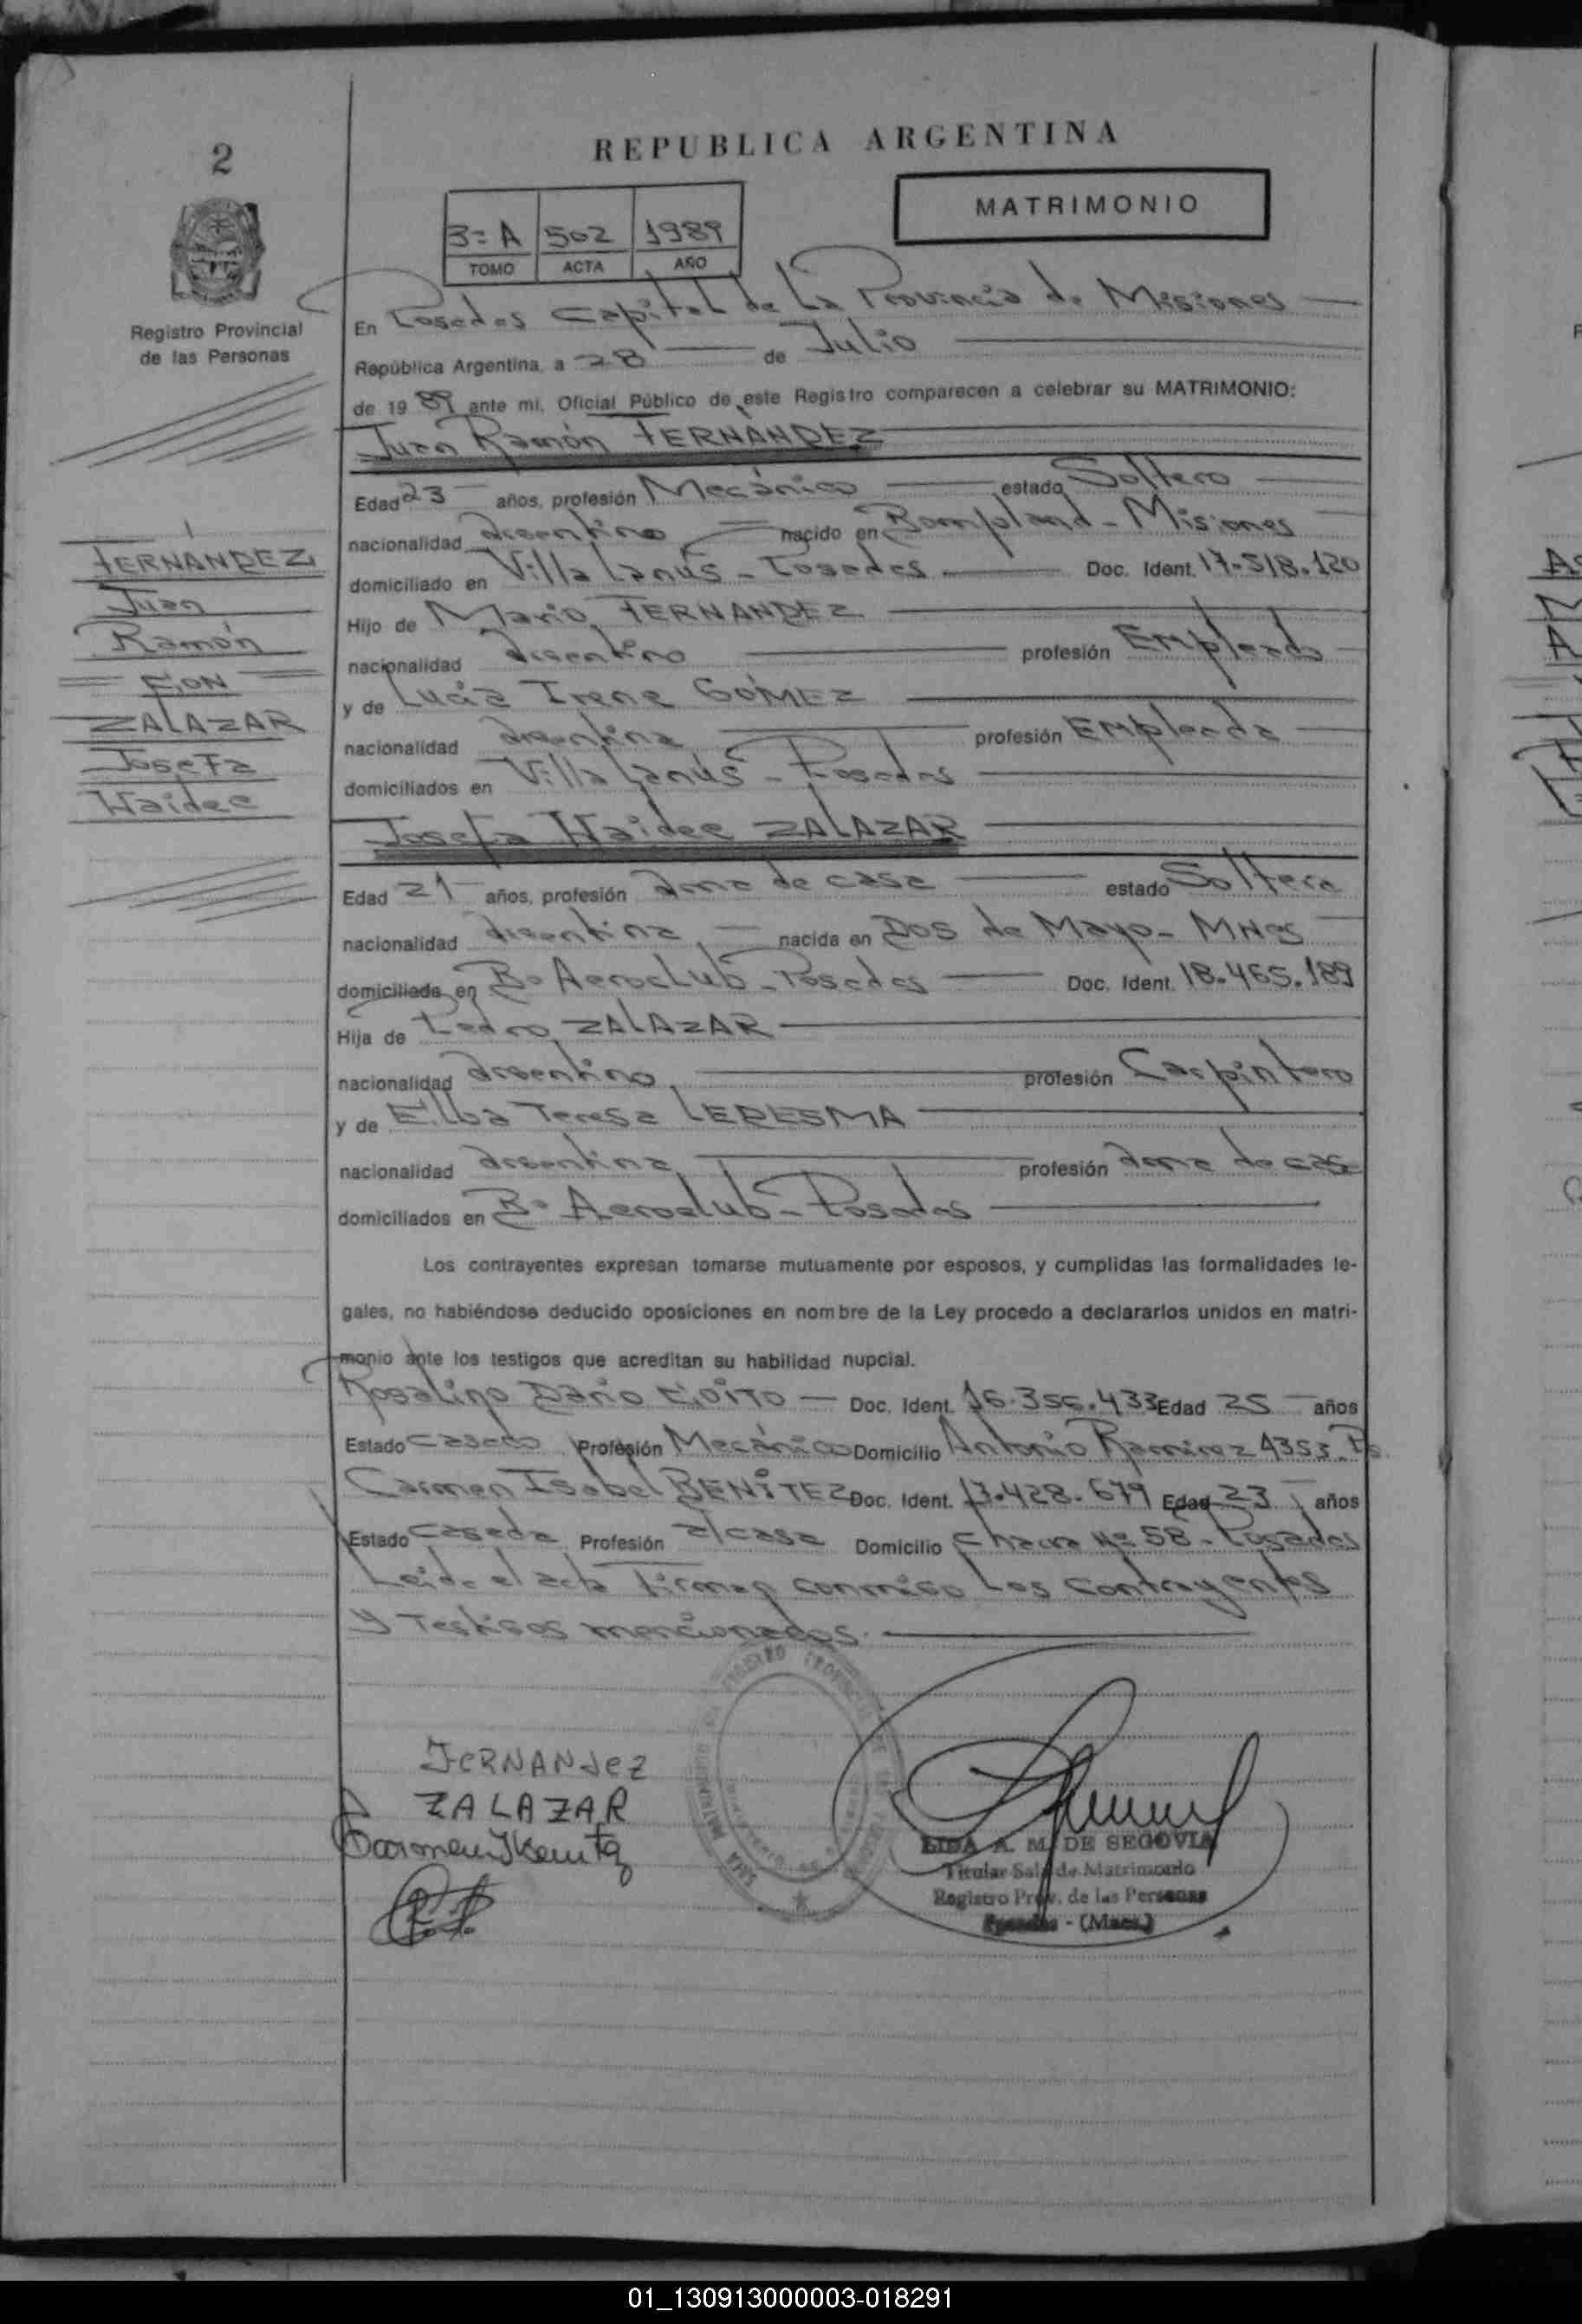 2
REPUBLICA ARGENTINA
MATRIMONIO
3= A 502 1989
TOMO ACTA AÑO
Registro Provincial
de las Personas
En Posadas Capital de La Provincia de Misiones
República Argentina, a 28 de Julio
de 1989 ante mi, Oficial Público de este Registro comparecen a celebrar su MATRIMONIO:
Juan Ramón FERNÁNDEZ
Edad 23 años, profesión Mecánico estado Soltero
nacionalidad argentino nacido en Bompland - Misiones
domiciliado en Villa Lanús - Posadas Doc. Ident. 17.518.120
Hijo de Mario FERNANDEZ
nacionalidad argentino profesión Empleado
y de Lucía Irene GÓMEZ
nacionalidad argentina profesión Empleada
domiciliados en Villa Lanús - Posadas
Josefa Haidee ZALAZAR
Edad 21 años, profesión ama de casa estado Soltera
nacionalidad argentina nacida en Dos de Mayo - Mnes
domiciliada en B° Aeroclub - Posadas Doc. Ident. 18.465.189
Hija de Pedro ZALAZAR
nacionalidad argentino profesión Carpintero
y de Elba Teresa LEDESMA
nacionalidad argentina profesión ama de casa
domiciliados en B° Aeroclub - Posadas
FERNANDEZ
Juan
Ramón
CON
ZALAZAR
Josefa
Haidee
Los contrayentes expresan tomarse mutuamente por esposos, y cumplidas las formalidades le-
gales, no habiéndose deducido oposiciones en nombre de la Ley procedo a declararlos unidos en matri-
monio ante los testigos que acreditan su habilidad nupcial.
Rosalino Dario Doc. Ident. 16.356.433 Edad 25 años
Estado casado Profesión Mecánico Domicilio Antonio Ramirez 4353 Ps
Carmen Isabel BENITEZ Doc. Ident. 17.428.679 Edad 23 años
Estado casada Profesión a/casa Domicilio Chacra Nº 58 - Posadas
Leida el acta firman conmigo Los contrayentes
y Testigos mencionados.
FERNANdeZ
ZALAZAR
LIDA A. M. DE SEGOVIA
Titular Sala de Matrimonio
Registro Prov. de las Personas
Posadas - (Mnes.)
01_130913000003-018291